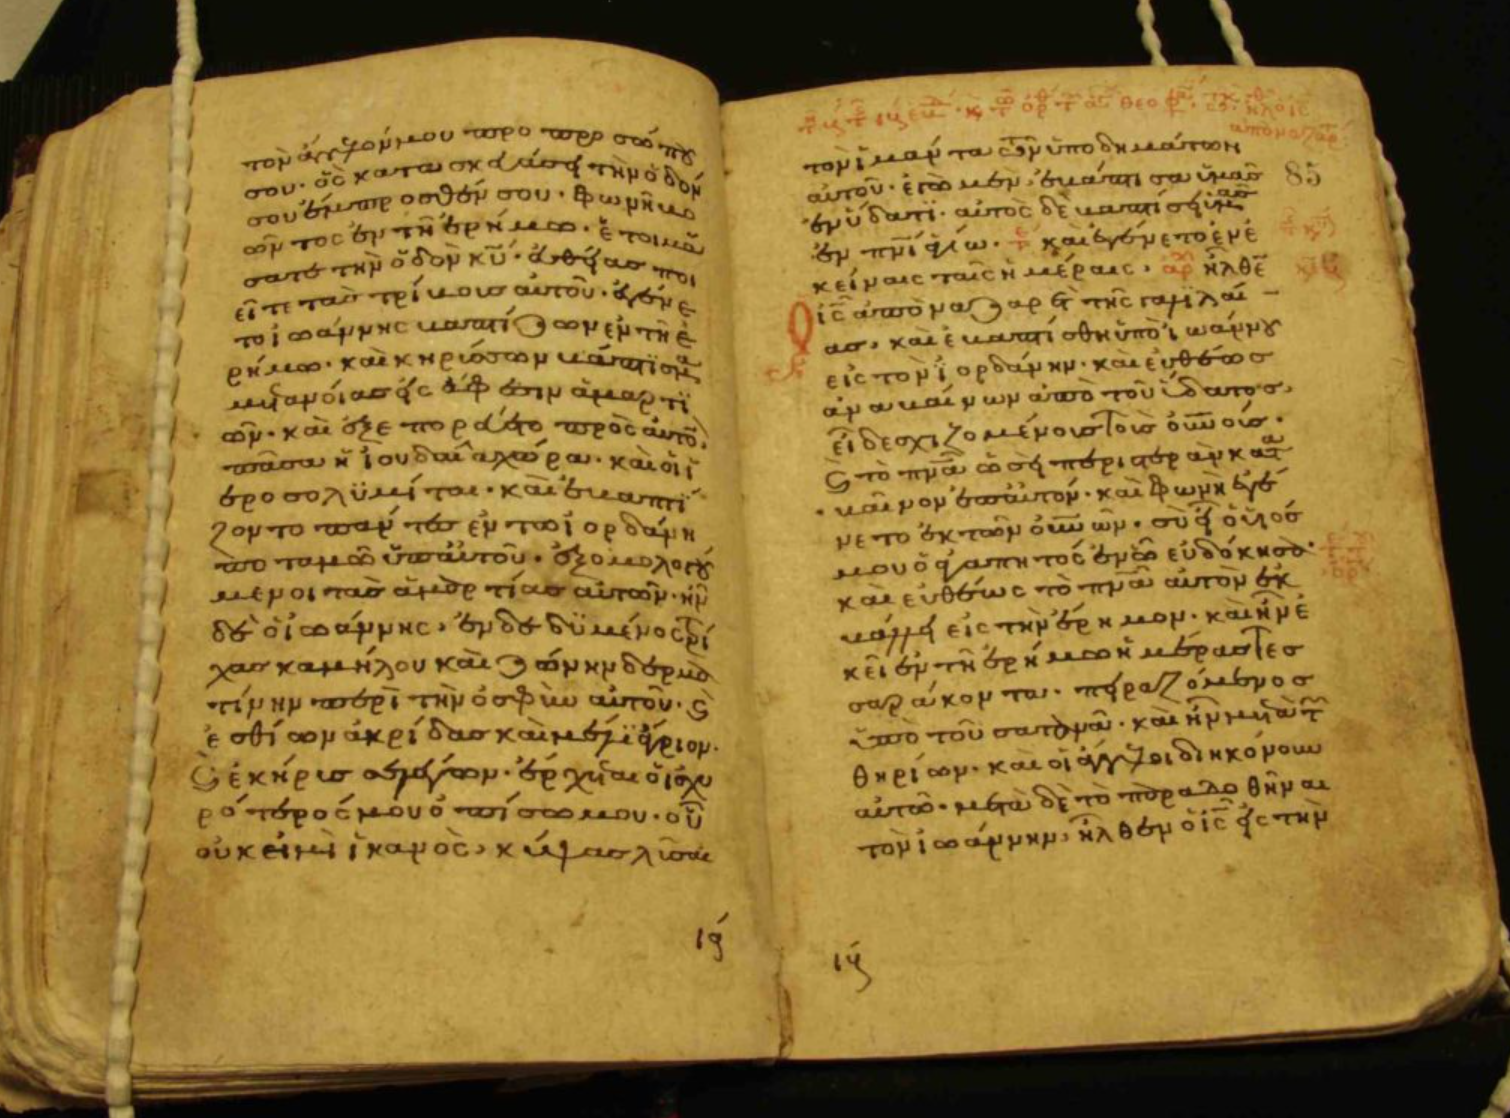 τὸν ἄγγελόν μου πρὸ προσώπου
σου· ὃς κατασκευάσει τὴν ὁδόν
σου ἔμπροσθέν σου· φωνὴ βο
ῶντος ἐν τῇ ἐρήμω· ἑτοιμά
σατε τὴν ὁδὸν κυ· εὐθείας ποι
εῖτε τὰς τρίβους αὐτοῦ· ἐγένε
το ἰωάννης βαπτίζων ἐν τῇ ἐ
ρήμω· καὶ κηρύσσων βάπτισμα
μετανοίας εἰς ἄφεσιν ἁμαρτι
ῶν· καὶ ἐξεπορεύετο πρὸς αὐτὸν
πᾶσα ἡ ἰουδαία χώρα· καὶ οἱ ἱ
εροσολυμίται· καὶ ἐβαπτί
ζοντο πάντες ἐν τῶ ἰορδάνη
ποταμῶ ὑπ αὐτοῦ· ἐξομολογού
μενοι τὰς ἁμαρτίας αὐτῶν· ἦν
δὲ ὁ ἰωάννης· ἐνδεδυμένος τρί
χας καμήλου καὶ ζώνην δερμα
τίνην περὶ τὴν ὀσφὺν αὐτοῦ· ϗ
ἐσθίων ἀκρίδας καὶ μέλι ἄγριον·
ϗ ἐκήρυσσε λέγων· ἔρχεται ὁ ἰσχυ
ρότερός μου ὀπίσω μου· οὗ
οὐκ εἰμὶ ἱκανὸς· κύψας λῦσαι
ις
τὸν ἱμάντα τῶν ὑποδημάτων
αὐτοῦ· ἐγὼ μὲν ἐβάπτισα ὑμᾶς
ἐν ὕδατι· αὐτὸς δὲ βαπτίσει ὑμᾶς
ἐν πνι ἁγίω· καὶ ἐγένετο ἐν ἐ
κείναις ταῖς ἡμέραις· ἦλθεν
ὁ ις ἀπὸ ναζαρετ τῆς γαλιλαί
ας· καὶ ἐβαπτίσθη ὑπὸ ἰωάννου
εἰς τὸν ἰορδάνην· καὶ εὐθέως
ἀναβαίνων ἀπὸ τοῦ ὕδατος·
εἶδε σχιζομένους τοὺς ουνους·
ϗ τὸ πνα ὡσεὶ περιστερὰν κατα
βαῖνον ἐπ αὐτόν· καὶ φωνὴ ἐγέ
νετο ἐκ τῶν ουνων· σὺ εἶ ὁ υἱός
μου ὁ ἀγαπητός ἐν ᾧ εὐδόκησα·
καὶ εὐθέως τὸ πνα αὐτὸν ἐκ
βάλλει εἰς τὴν ἔρημον· καὶ ἦν ἐ
κεῖ ἐν τῇ ἐρήμω ἡμέρας τεσ
σαράκοντα· πειραζόμενος
ὑπὸ τοῦ σατανᾶ· καὶ ἦν μετὰ τῶν
θηρίων· καὶ οἱ ἄγγελοι διηκόνουν
αὐτῶ· μετὰ δὲ τὸ παραδοθῆναι
τὸν ἰωάννην· ἦλθεν ὁ ις εἰς τὴν
85